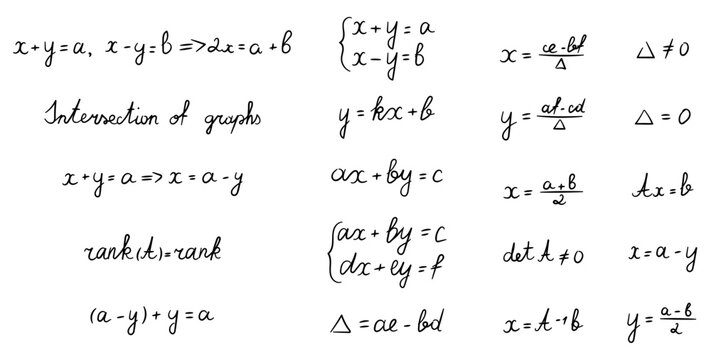 x+y=a, x-y=b =>2x=a+b
{x+y=a
x-y=b
x=ce-bf/Δ
Δ≠0
Intersection of graphs
y=kx+b
y=af-cd/Δ
Δ=0
x+y=a=>x=a-y
ax+by=c
x=a+b/2
Ax=b
rank(A)=rank
{ax+by=c
dx+ey=f
det A≠0
x=a-y
(a-y)+y=a
Δ=ae-bd
x=A⁻¹b
y=a-b/2